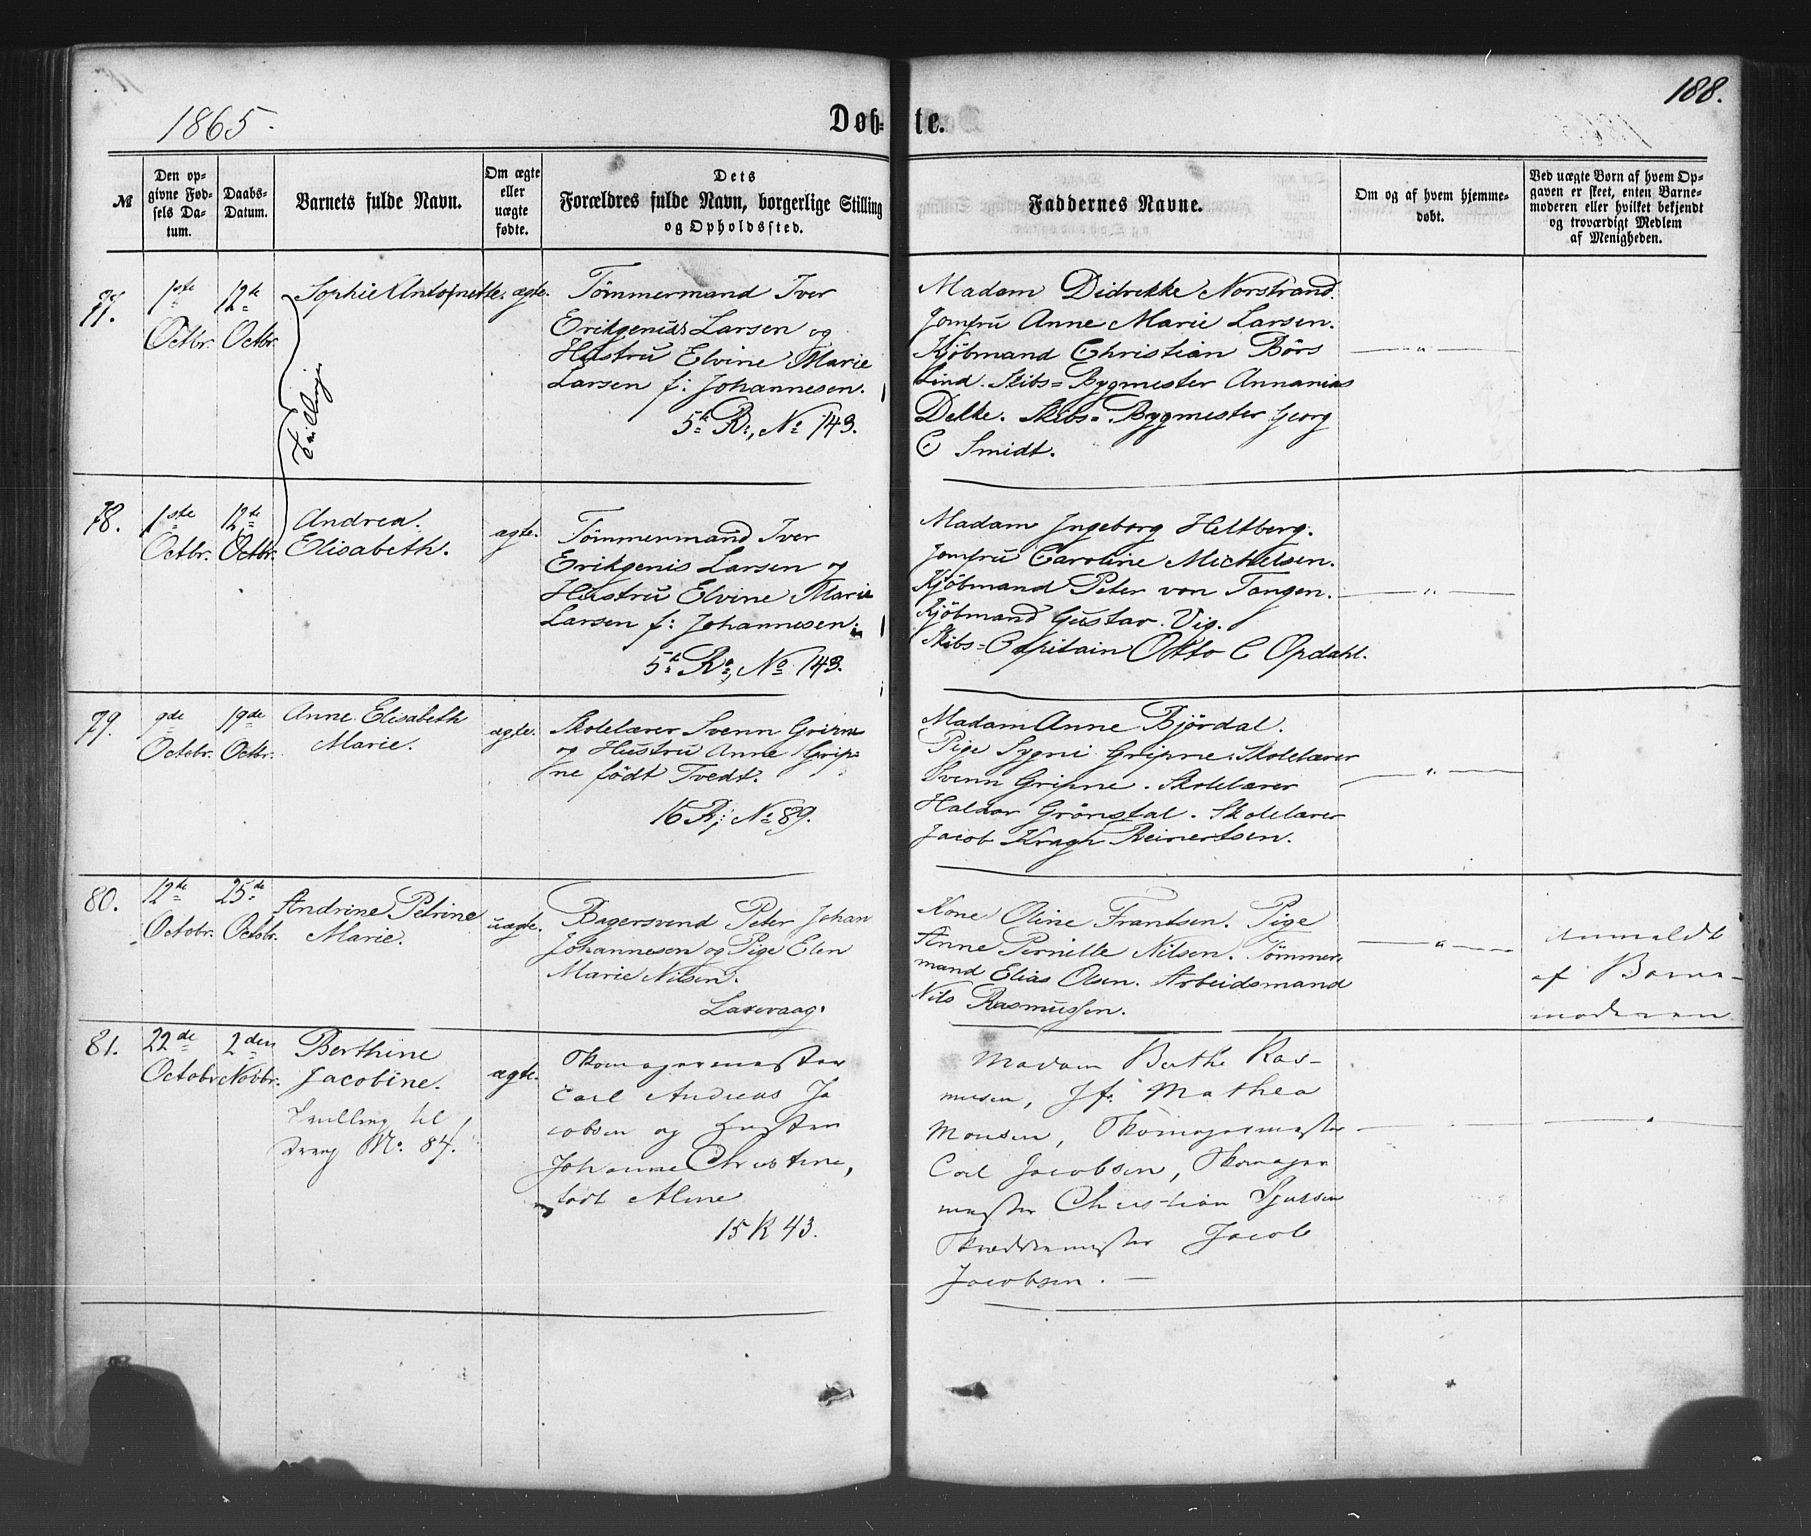 1865.
Døb-
te.
188.
№
Den op-
givne Fød-
sels Da-
tum.
Daabs-
Datum.
Barnets fulde Navn.
Om ægte
eller
uægte
fødte.
Dets
Forældres fulde Navn, borgerlige Stilling
og Opholdssted.
Faddernes Navne.
Om og af hvem hjemme-
døbt.
Ved uægte Børn af hvem Op-
gaven er skeet, enten Barne-
moderen eller hvilket bekjendt
og troværdigt Medlem
af Menigheden.
77.
1ste
Octbr.
12te
Octbr.
Sophie Antoinette.
ægte.
Tömmermand Iver
Larsen og
Hustru Elvine Marie
Larsen f: Johannesen.
5te R:, No 143.
Madam Didrekke Norstrand.
Jomfru Anne Marie Larsen.
Kjöbmand Christian Börs
Lind. Skibs=Bygmester Annanias
Dekke. Skibs=Bygmester Georg
C Smidt.
"
78.
1ste
Octbr.
12te
Octbr.
Andrea
Elisabeth.
ægte.
Tömmermand Iver
Larsen og
Hustru Elvine Marie
Larsen f: Johannesen.
5te R:, No 143.
Madam Ingeborg Heltberg.
Jomfru Caroline Michelsen.
Kjöbmand Peter von Tangen.
Kjöbmand Gustav Vig.
Skibs=Capitain Otto C Opdahl.
"
79.
9de
Octobr.
19de
Octbr.
Anne Elisabeth
Marie.
ægte.
Skolelærer Svenn Gripne
og Hustru Anne Grip=
ne födt Tvedt.
16 R; No 89.
Madam Anne Björdal.
Pige Sygni Gripne. Skolelærer
Svenn Gripne. Skolelærer
Haldor Grönstal. Skolelærer
Jacob Kragh Reinertsen.
"
80.
12te
Octobr.
25de
Octobr.
Andrine Petrine
Marie.
uægte.
Bagersvend Peter Johan
Johannesen og Pige Elen
Marie Nilsen.
Laxevaag.
Kone Oline Frantsen. Pige
Anne Pernille Nilsen. Tömmer=
mand Elias Olsen. Arbeidsmand
Nils Rasmussen.
"
Anmeldt
af Barne-
moderen
81.
22de
Octobr
2den
Novbr.
Berthine
Jacobine.
Tvilling til
Dreng No 84.
ægte.
Skomagermester
Carl Andreas Ja
cobsen og Hustru
Johanne Christine,
födt Alme
15 R 43.
Madam Berthe Ras-
musen, Jf: Mathea
Monsen, Skomagermester
Carl Jacobsen, Skomager
mester Christian
Skræddermester Jacob
Jacobsen. —
"